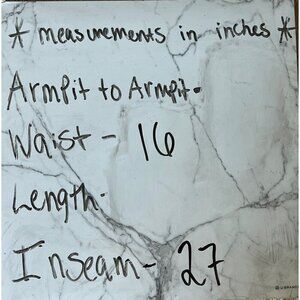 * measurements in inches *
Armpit to Armpit-
Waist - 16
Length-
Inseam- 27